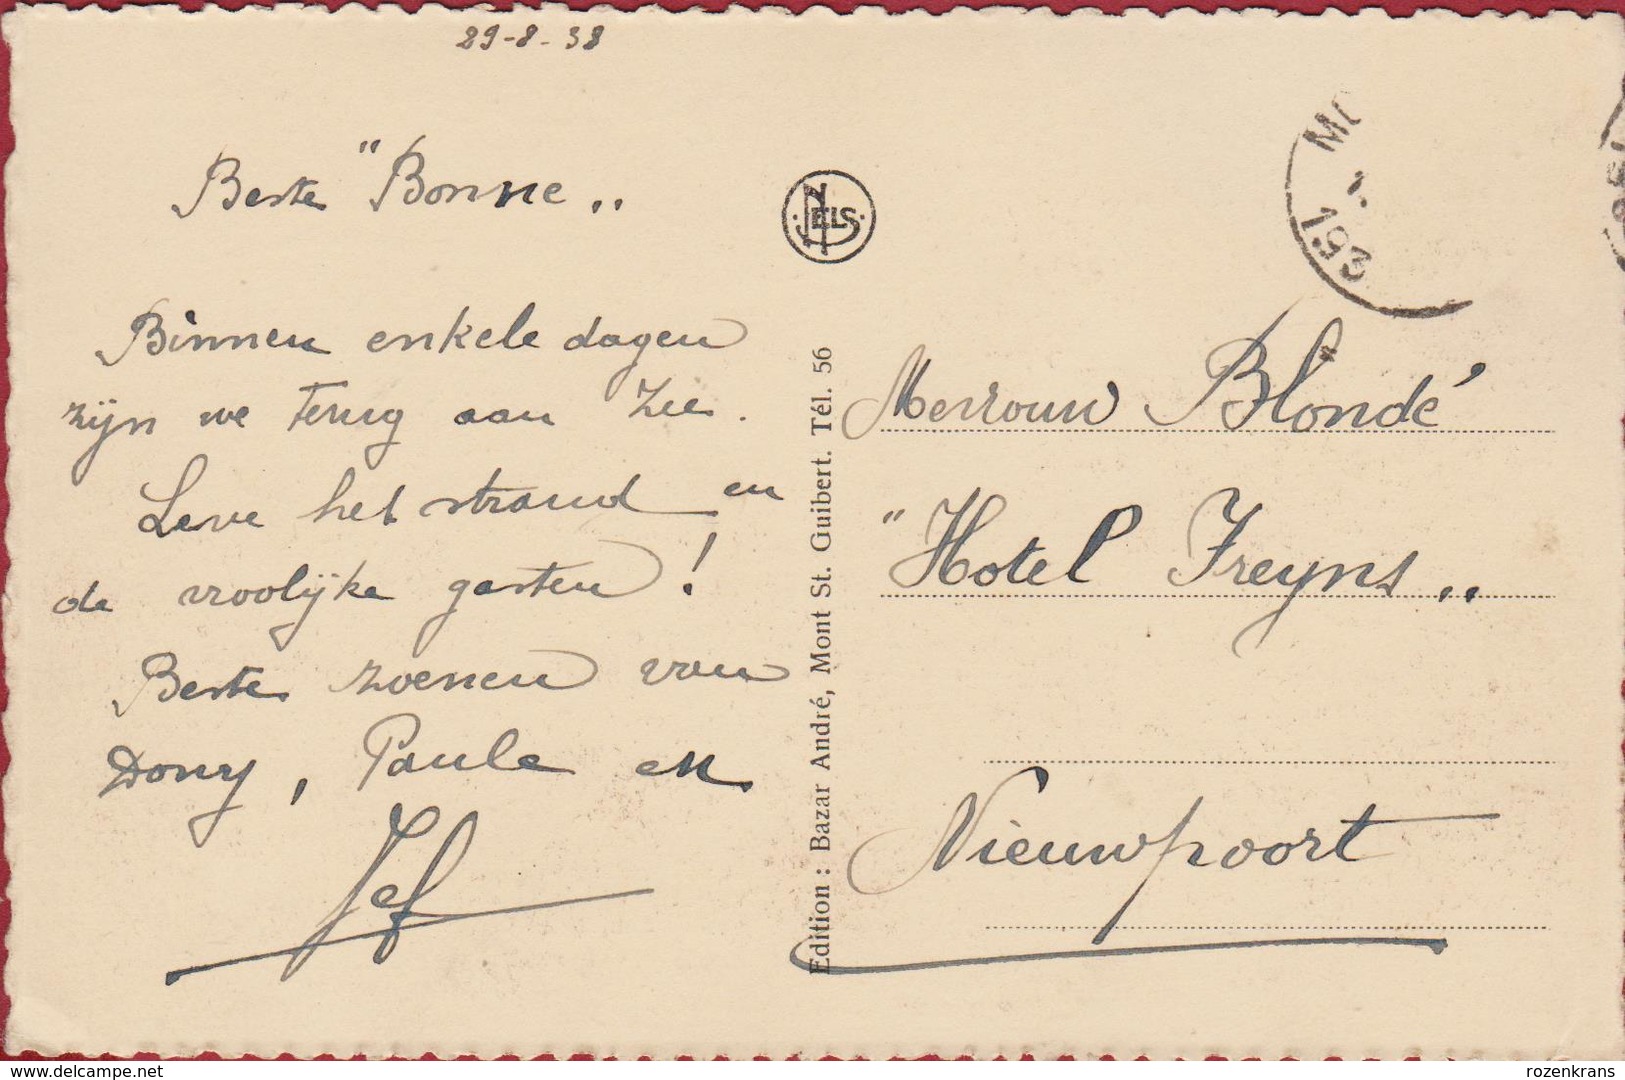 29-8-38
Beste "Bonne„
Binnen enkele dagen
zijn we terug aan zee.
Leve het strand en
de vroolijke gasten!
Beste zoenen van
Dony, Paule en
Jef
NELS
Edition : Bazar André, Mont St. Guibert. Tél. 56
193
Mevrouw Blondé
"Hotel Freyns„
Nieuwpoort
delcampe.net
rozenkrans